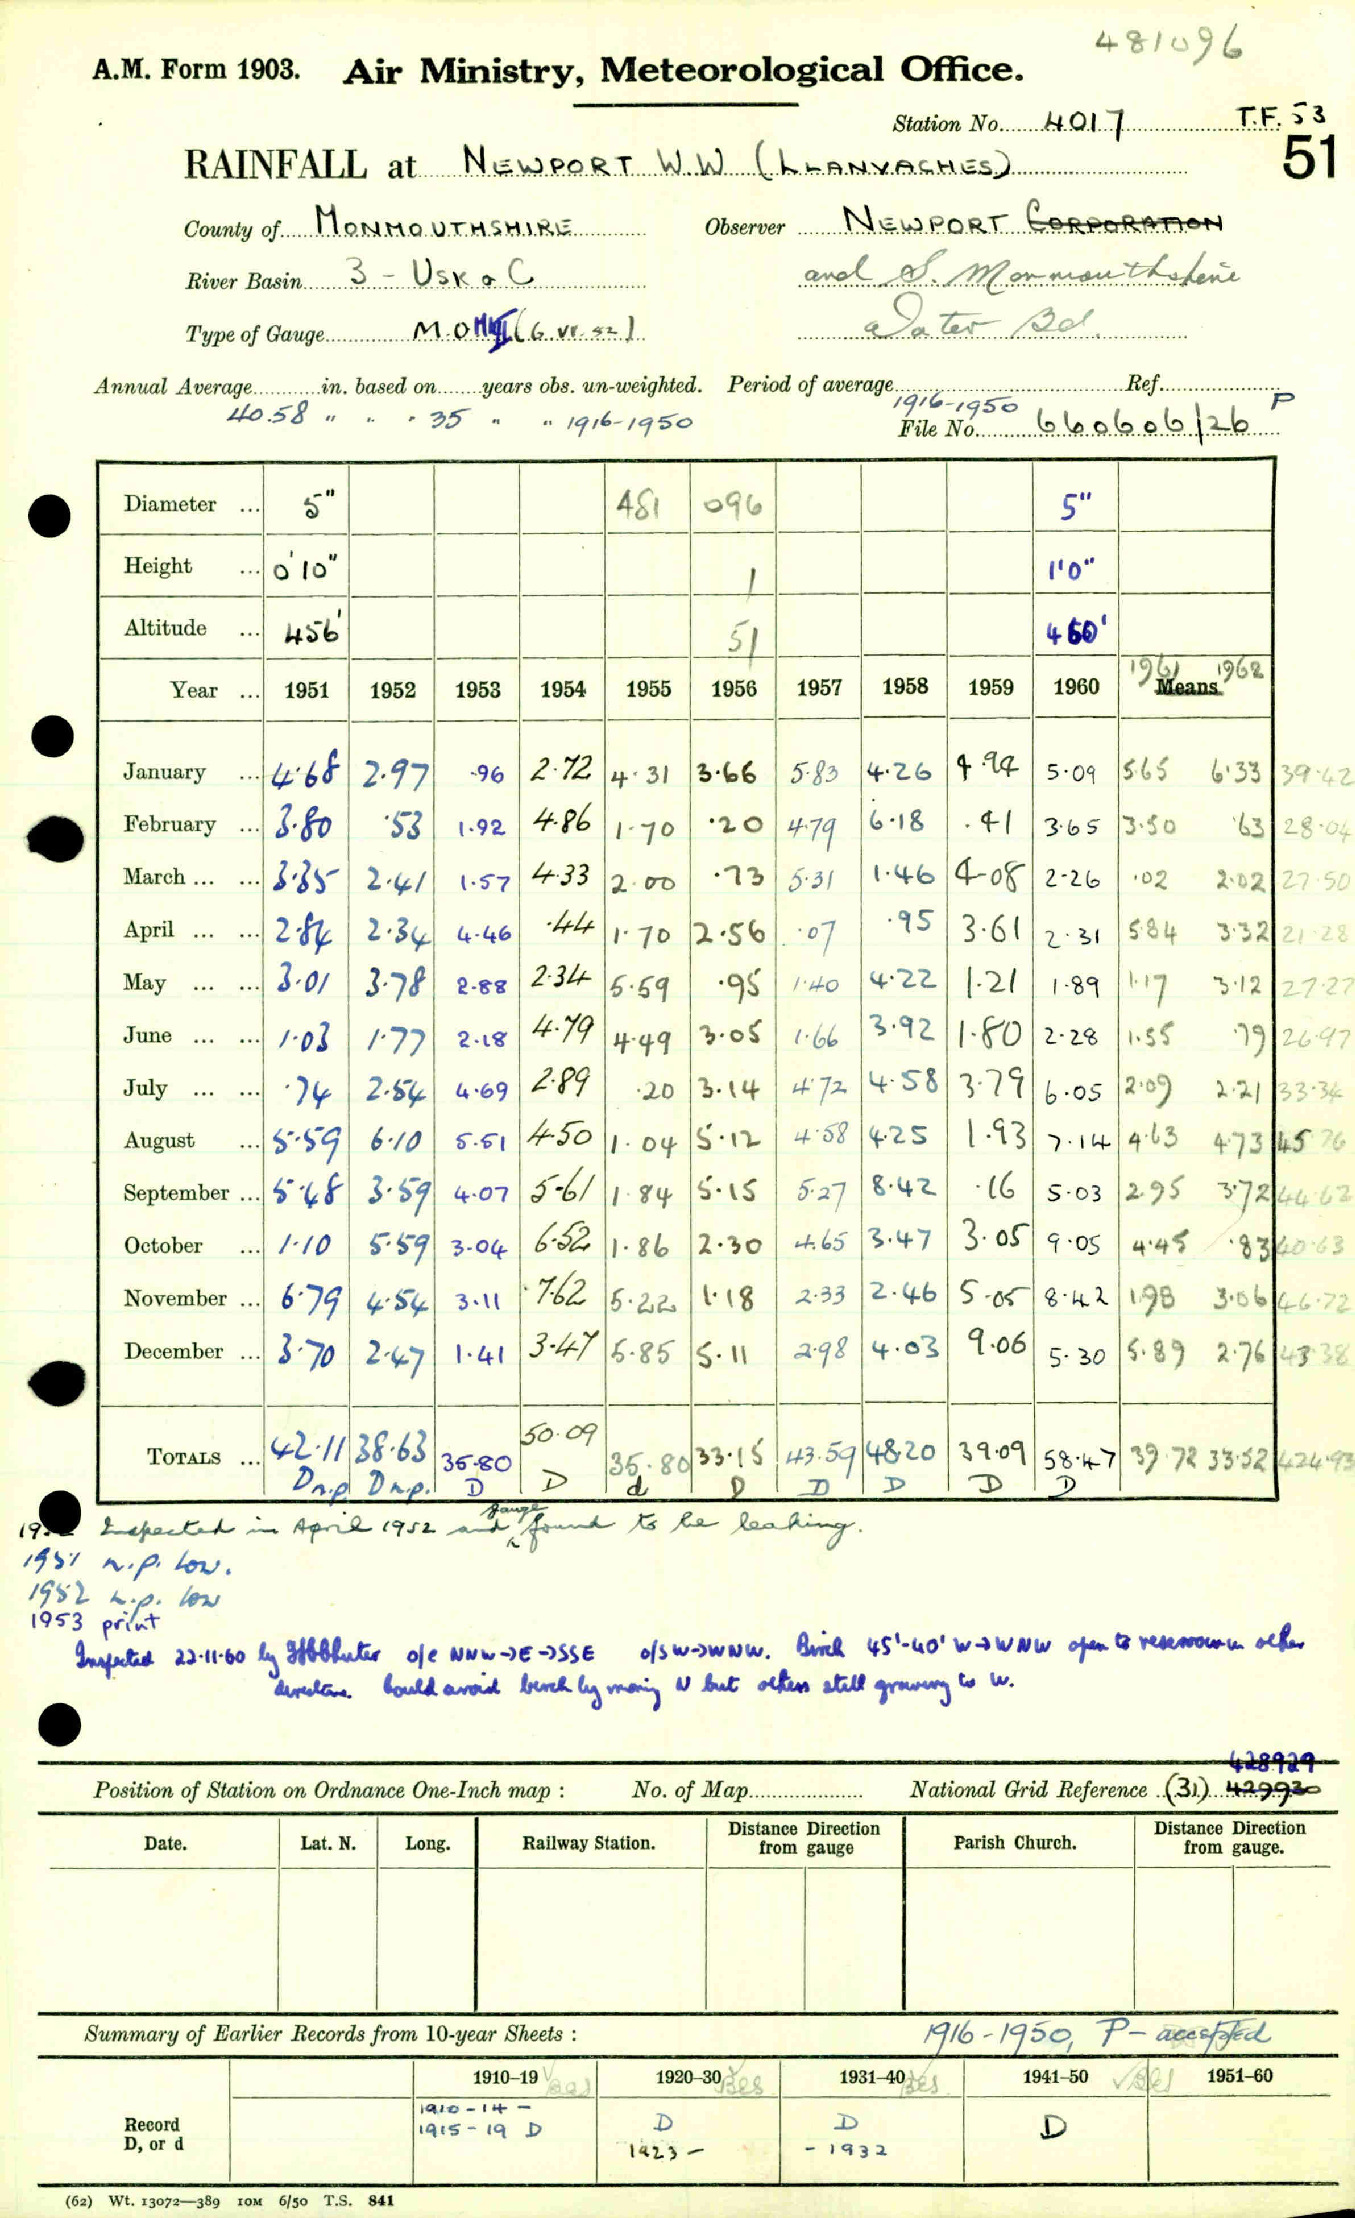 481096
A.M. Form 1903. Air Ministry, Meteorological Office.
Station No. 4017 T.F. 53
RAINFALL at NEWPORT W.W (LLANVACHES) 51
County of MONMOUTHSHIRE Observer NEWPORT CORPORATION
River Basin 3 - USK & C and S. Monmouthshire
Type of Gauge M.O (6.VI.52) Water Bd.
Annual Average in. based on years obs. un-weighted. Period of average Ref.
40.58 " " " 35 " " 1916-1950 1916-1950 P
File No. 660606/26
Diameter ... 5" 481 096 5"
Height ... 0'10" 1 1'0"
Altitude ... 456' 51 460'
Year ... 1951 1952 1953 1954 1955 1956 1957 1958 1959 1960 Means 1961 1962
January ... 4.68 2.97 .96 2.72 4.31 3.66 5.83 4.26 4.94 5.09 5.65 6.33 39.42
February ... 3.80 .53 1.92 4.86 1.70 .20 4.79 6.18 .41 3.65 3.50 .63 28.04
March ... ... 3.35 2.41 1.57 4.33 2.00 .73 5.31 1.46 4.08 2.26 .02 2.02 27.50
April ... ... 2.84 2.34 4.46 .44 1.70 2.56 .07 .95 3.61 2.31 5.84 3.32 21.28
May ... ... 3.01 3.78 2.88 2.34 5.59 .95 1.40 4.22 1.21 1.89 1.17 3.12 27.27
June ... ... 1.03 1.77 2.18 4.79 4.49 3.05 1.66 3.92 1.80 2.28 1.55 .79 26.97
July ... ... .74 2.54 4.69 2.89 .20 3.14 4.72 4.58 3.79 6.05 2.09 2.21 33.34
August ... 5.59 6.10 5.51 4.50 1.04 5.12 4.58 4.25 1.93 7.14 4.63 4.73 45.76
September ... 5.48 3.59 4.07 5.61 1.84 5.15 5.27 8.42 .16 5.03 2.95 3.72 44.62
October ... 1.10 5.59 3.04 6.52 1.86 2.30 4.65 3.47 3.05 9.05 4.45 .83 40.63
November ... 6.79 4.54 3.11 7.62 5.22 1.18 2.33 2.46 5.05 8.42 1.98 3.06 46.72
December ... 3.70 2.47 1.41 3.47 5.85 5.11 2.98 4.03 9.06 5.30 5.89 2.76 43.38
TOTALS ... 42.11 38.63 35.80 50.09 35.80 33.15 43.59 48.20 39.09 58.47 39.72 33.52 424.93
D n.p. D n.p. D D d D D D D D
Inspected in April 1952 and gauge found to be leaking.
1951 n.p. low.
1952 n.p. low
1953 print
Inspected 22.11.60 by o/e NNW→E→SSE o/s W→WNW. Birch 45'-40' W→WNW open to reservoir in other
directions. Could avoid birch by moving N but others still growing to W.
428929
Position of Station on Ordnance One-Inch map : No. of Map National Grid Reference (31) 429930
Date. Lat. N. Long. Railway Station. Distance from Direction gauge Parish Church. Distance from Direction gauge.
Summary of Earlier Records from 10-year Sheets : 1916-1950, P - accepted
1910–19 1920–30 1931–40 1941–50 1951–60
Record D, or d 1910-14 - 1915-19 D D 1923 - D - 1932 D
(62) Wt. 13072—389 10M 6/50 T.S. 841